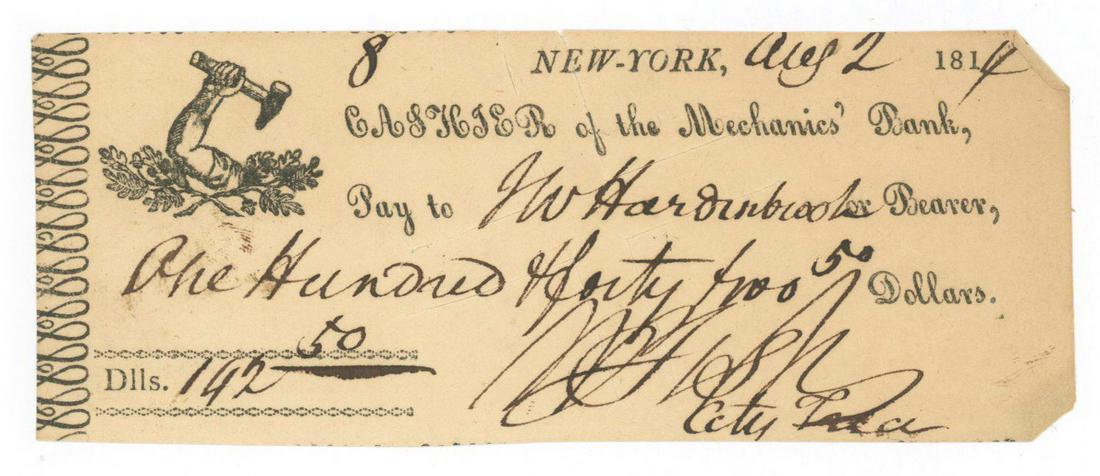 8 NEW-YORK, Aug 2 1814
CASHIER of the Mechanics' Bank,
Pay to JW Hardenbrook or Bearer,
One Hundred & forty two 50 Dollars.
50
Dlls. 142
City